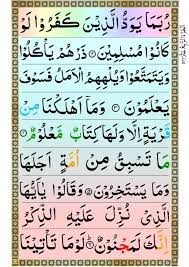 رُبَمَا يَوَدُّ الَّذِيْنَ كَفَرُوْا لَوْ
كَانُوْا مُسْلِمِيْنَ ۝ ذَرْهُمْ يَاْكُلُوْا
وَيَتَمَتَّعُوْا وَيُلْهِهِمُ الْاَمَلُ فَسَوْفَ
يَعْلَمُوْنَ ۝ وَمَآ اَهْلَكْنَا مِنْ
قَرْيَةٍ اِلَّا وَلَهَا كِتَابٌ مَّعْلُوْمٌ ۝
مَا تَسْبِقُ مِنْ اُمَّةٍ اَجَلَهَا
وَمَا يَسْتَاْخِرُوْنَ ۝ وَقَالُوْا يٰٓاَيُّهَا
الَّذِيْ نُزِّلَ عَلَيْهِ الذِّكْرُ
اِنَّكَ لَمَجْنُوْنٌ ۝ لَوْمَا تَاْتِيْنَا